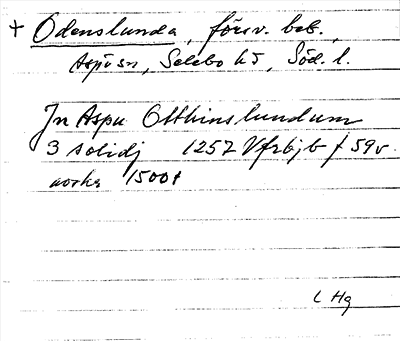 + Odenslunda, försv. beb.,
Aspö sn, Selebo hd, Söd. l.
Jn Aspu Otthinslundum
3 solidj 1257 Vfrbjb f 59v
avskr 1500t
L Hg